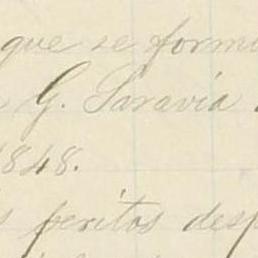 que se form
G. Saravia
1848.
peritos desp